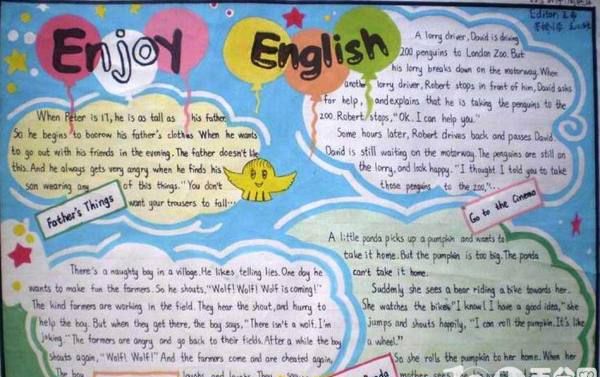 Enjoy English
Editor:
When Peter is 17, he is as tall as his father.
So he begins to boorow his father's clothes When he wants
to go out with his friends in the evening. The father doesn't like
this. And he always gets very angry when he finds his
son wearing any of this things. "You don't
want your trousers to fall...
Father's Things
A lorry driver, David is driving
200 penguins to London Zoo. But
his lorry breaks down on the motorway. When
another lorry driver, Robert stops in front of him, David asks
for help, and explains that he is taking the penguins to the
zoo. Robert stops, "OK. I can help you."
Some hours later, Robert drives back and passes David.
David is still waiting on the motorway. The penguins are still on
the lorry, and look happy. "I thought I told you to take
those penguins to the zoo,"...
Go to the Cinema
There's a naughty boy in a village. He likes telling lies. One day he
wants to make fun the farmers. So he shouts, "Wolf! Wolf! Wolf is coming!"
The kind farmers are working in the field. They hear the shout, and hurry to
help the boy. But when they get there, the boy says, "There isn't a wolf. I'm
joking." The farmers are angry and go back to their fields. After a while the boy
shouts again, "Wolf! Wolf!" And the farmers come and are cheated again.
The boy laughs and laughs. They
A little panda picks up a pumpkin and wants to
take it home. But the pumpkin is too big. The panda
can't take it home.
Suddenly she sees a bear riding a bike towards her.
She watches the bike. "I know! I have a good idea," she
jumps and shouts happily, "I can roll the pumpkin. It's like
a wheel."
So she rolls the pumpkin to her home. When her
Panda